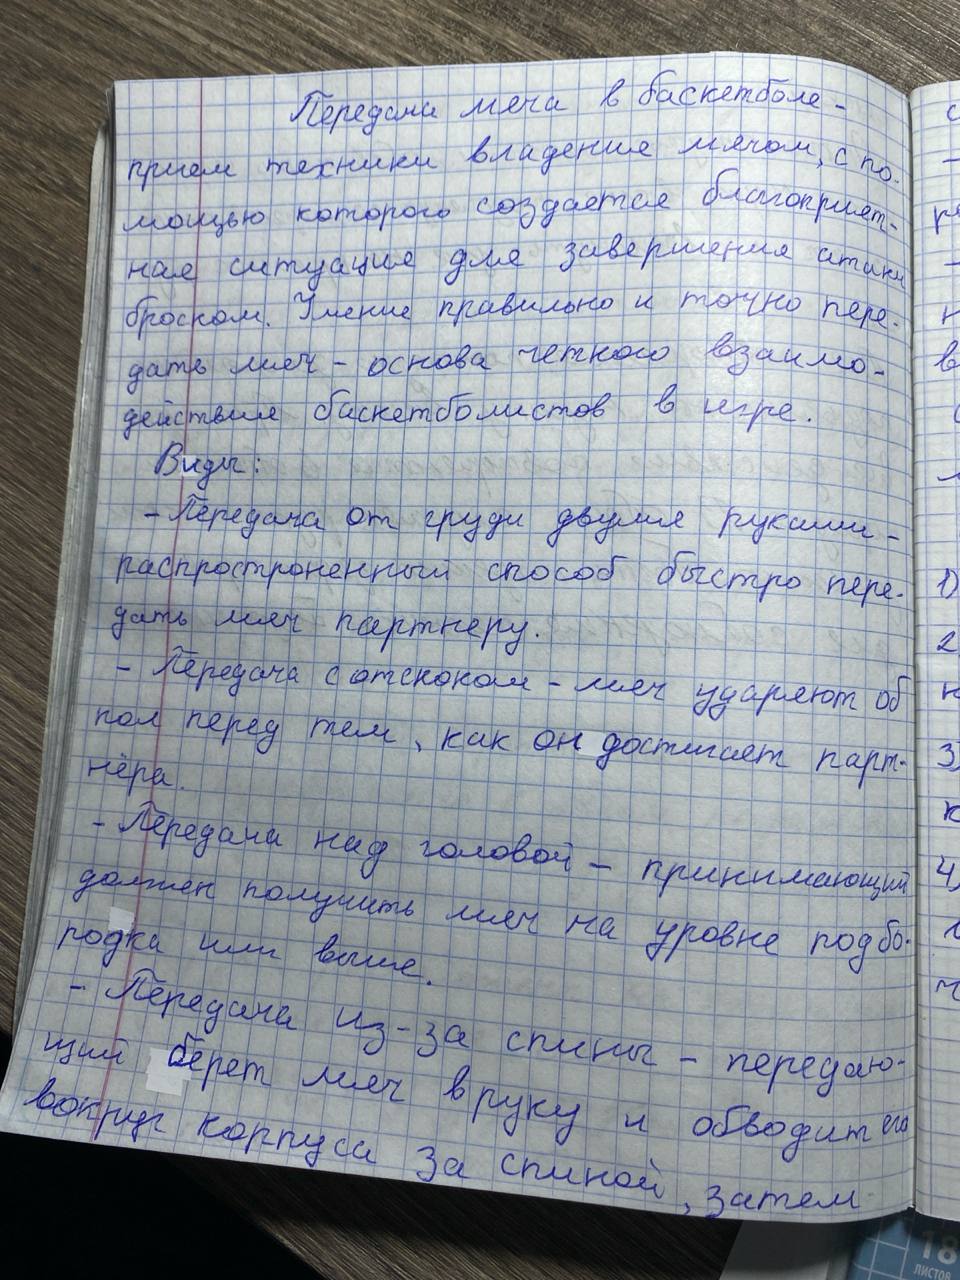 Передача мяча в баскетболе -
прием техники владение мячом, с по-
мощью которого создается благоприят-
ная ситуация для завершения атаки
броском. Умение правильно и точно пере-
дать мяч - основа четкого взаимо-
действия баскетболистов в игре.
Виды:
- Передача от груди двумя руками -
распростроненный способ быстро пере-
дать мяч партнеру.
- Передача с отскоком - мяч ударяют об
пол перед тем, как он достигает парт-
нёра.
- Передача над головой - принимающий
должен получить мяч на уровне подбо-
родка или выше.
- Передача из-за спины - передаю-
щий берет мяч в руку и обводит его
вокруг корпуса за спиной, затем
1)
2
3)
4)
18
листов